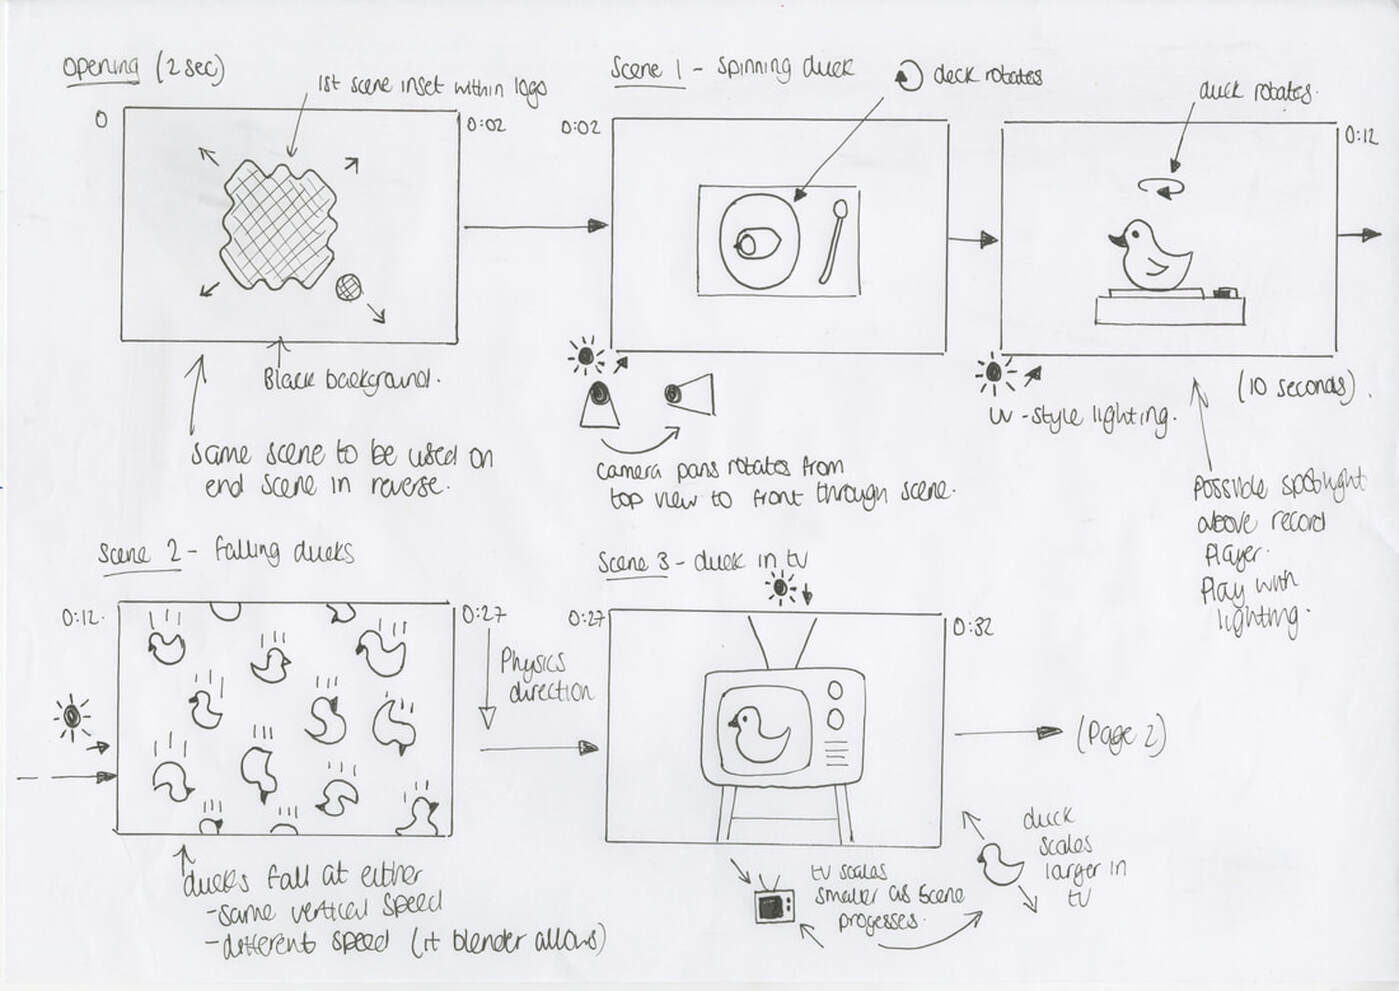 Opening (2 sec)
1st scene inset within logo
0
0:02
Black background.
Same scene to be used on
end scene in reverse.
Scene 1 - Spinning duck
deck rotates
0:02
duck rotates.
0:12
camera pans rotates from
top view to front through scene.
UV-style lighting.
(10 seconds).
Possible spotlight
above record
player.
Play with
lighting.
Scene 2 - falling ducks
0:12.
0:27
Physics
direction
ducks fall at either
-same vertical speed
-different speed (if blender allows)
Scene 3 - duck in tv
0:27
0:32
(Page 2)
tv scales
smaller as scene
progesses.
duck
scales
larger in
tv